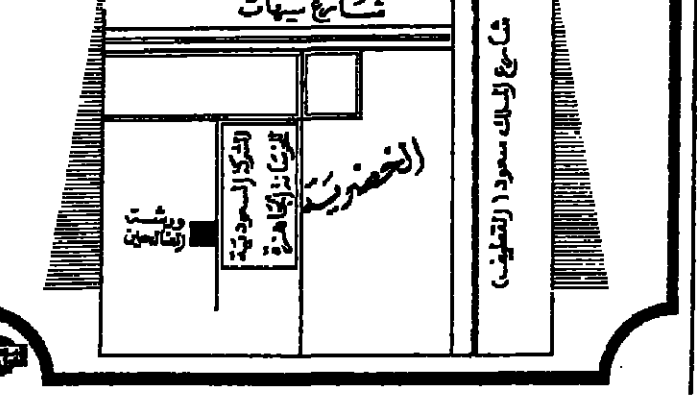 شارع سيهات
شارع الملك سعود ( القطيف )
الخضرية
الشركة السعودية
للخرسانة الجاهزة
ورشة